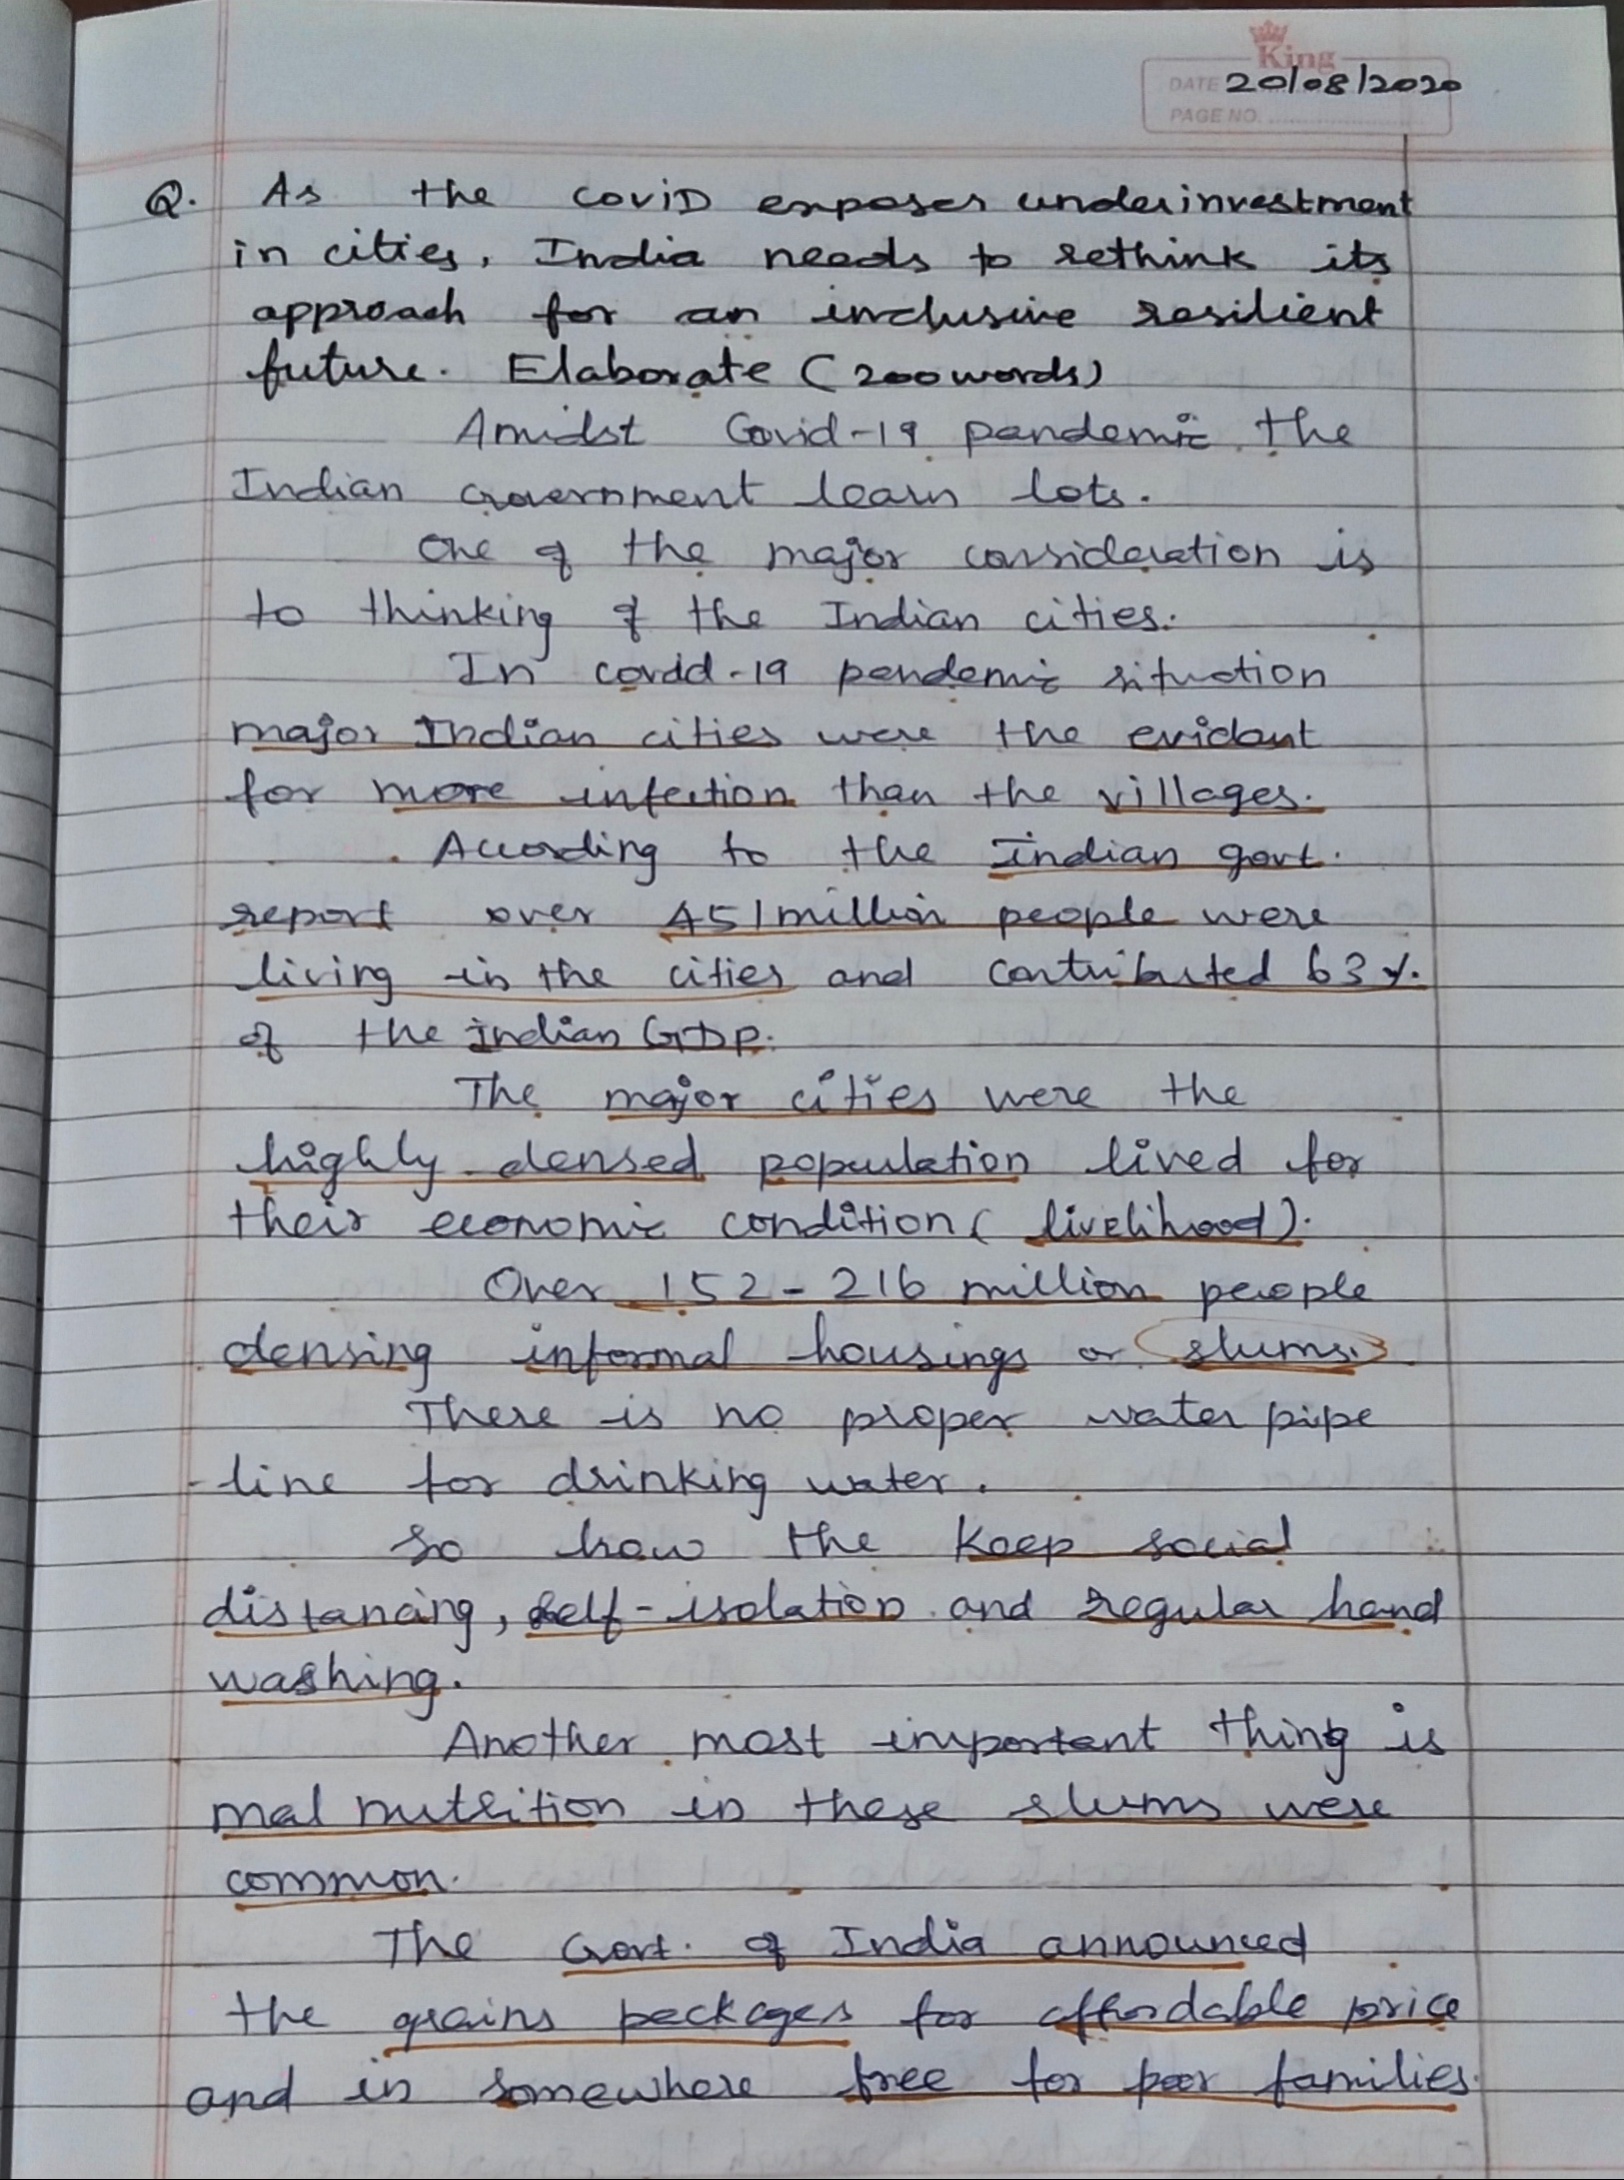 King
DATE 20/08/2020
PAGE NO.
Q. As the coviD exposes underinvestment
in cities, India needs to rethink its
approach for an inclusive resilient
future. Elaborate (200 words)
Amidst Covid-19 pandemic the
Indian Government learn lots.
One of the major consideration is
to thinking of the Indian cities.
In covid-19 pendemic situation
major Indian cities were the evidant
for more infection than the villages.
According to the Indian govt.
report over 451 million people were
living in the cities and contributed 63%
of the Indian GDP.
The major cities were the
highly densed population lived for
their economic condition (livelihood).
Over 152-216 million people
densing informal housings or slums.
There is no proper water pipe
-line for drinking water.
So how the keep social
distancing, self-isolation and regular hand
washing.
Another most important thing is
mal nutrition in these slums were
common.
The Govt. of India announced
the grains packages for affordable price
and in somewhere free for poor families.